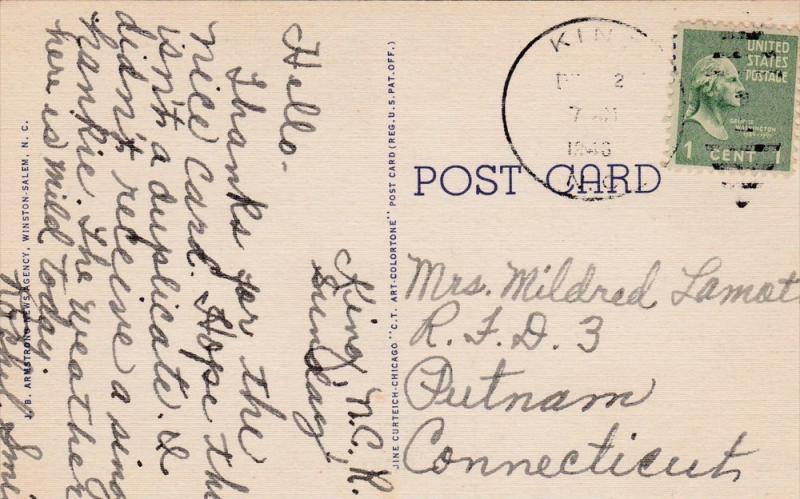 King, N.C., R.
Sunday,
Hello-
Thanks for the
nice card. Hope this
isn't a duplicate. I
didn't receive a
hankie. The weather
here is mild today.
J. B. ARMSTRONG NEWS AGENCY, WINSTON-SALEM, N. C.
CURTEICH-CHICAGO "C.T. ART-COLORTONE" POST CARD (REG. U.S. PAT. OFF.)
POST CARD
KING
2
7
N.C.
UNITED
STATES
POSTAGE
GEORGE
WASHINGTON
1 CENT 1
Mrs. Mildred Lamot
R.F.D. 3
Putnam
Connecticut